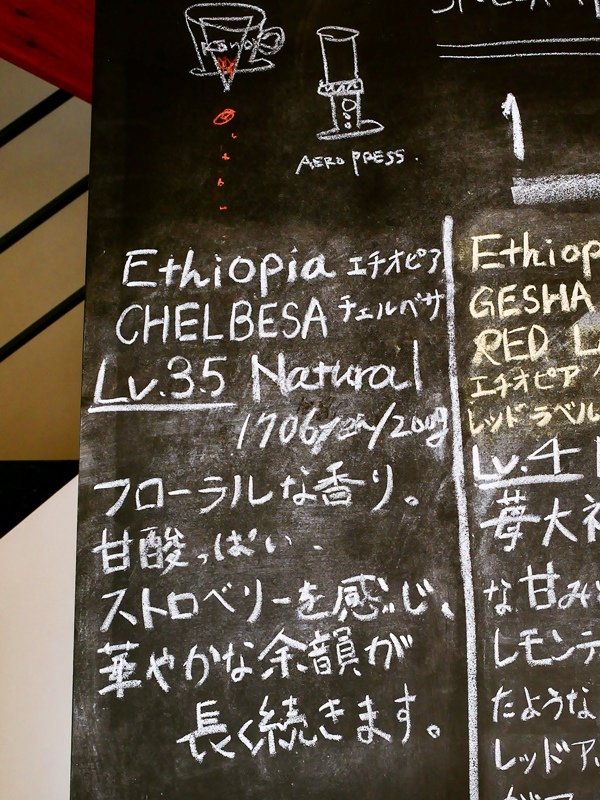 Kono
AERO PRESS.
1
Ethiopia エチオピア
CHELBESA チェルベサ
Lv.3.5 Natural
1706yen/200g
フローラルな香り。
甘酸っぱい、
ストロベリーを感じ、
華やかな余韻が
長く続きます。
Ethiop
GESHA
RED L
エチオピア
レッドラベル
Lv.4
苺大福
な甘みと
レモンテ
たような
レッドア